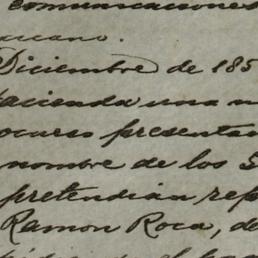 comunicaciones
Diciembre de 185
Hacienda una n
ocurso presentad
nombre de los S
pretendian rep
Ramon Roca, de